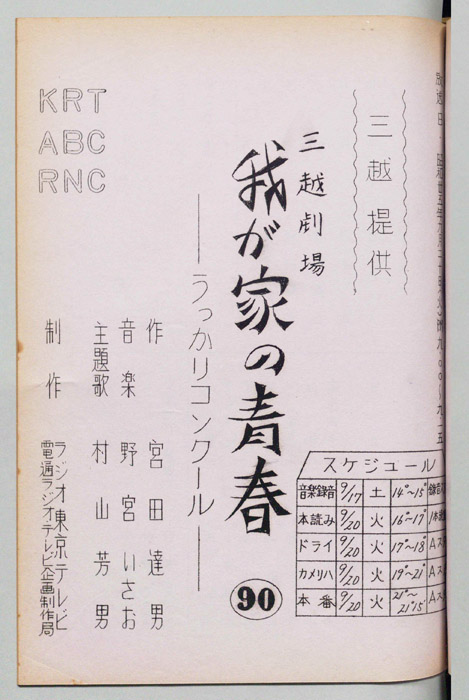 三越提供
三越劇場
我が家の青春
――うっかりコンクール――
90
KRT
ABC
RNC
作 宮田達男
音楽 野宮いさお
主題歌 村山芳男
制作 ラジオ東京テレビ
電通ラジオテレビ企画制作局
スケジュール
音楽録音 9/17 土 14°~15°
本読み 9/20 火 16°~17°
ドライ 9/20 火 17°~18° Aス
カメリハ 9/20 火 19°~21° Aス
本番 9/20 火 21°~21°15' Aス